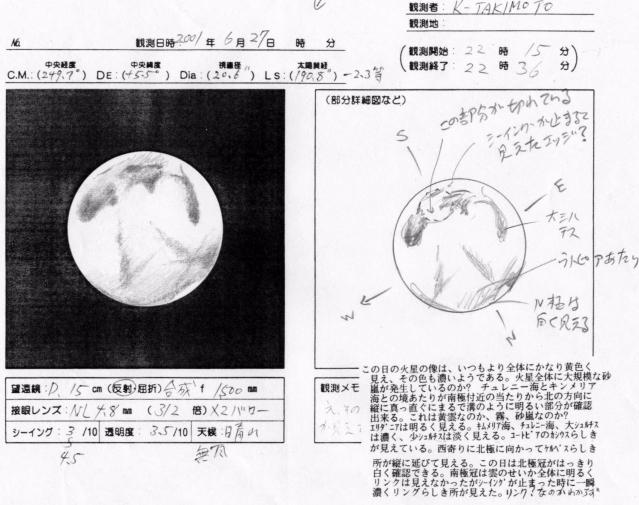 観測者: K-TAKIMOTO
観測地:
No.
観測日時 2001 年 6 月 27 日 時 分
(観測開始: 22 時 15 分
観測終了: 22 時 36 分)
中央経度 中央緯度 視直径 太陽黄経
C.M.:(249.7°) DE:(+5.5°) Dia:(20.6") Ls:(190.8°) -2.3等
(部分詳細図など)
この部分が切れている
シーイングが止まると
見えたエッジ?
S
E
大シルチス
ウトピアあたり
N極は
白く見える
N
W
望遠鏡: D. 15 cm (反射・屈折) 合成 f 1500 mm
接眼レンズ: NL 4.8 mm (312 倍) X2バロー
シーイング: 3/10 透明度: 3.5/10 天候: 晴れ
5
4.5
無風
観測メモ
この日の火星の像は、いつもより全体にかなり黄色く
見え、その色も濃いようである。火星全体に大規模な砂
嵐が発生しているのか? チュレニー海とキンメリア
海との境あたりが南極付近の当たりから北の方向に
縦に真っ直ぐにまるで溝のように明るい部分が確認
出来る。これは黄雲なのか、霧、砂嵐なのか?
エリダニアは明るく見える。キムメリア海、チュレニー海、大シュルチス
は濃く、少シュルチスは淡く見える。
が見えている。西寄りに北極に向かってケルベスらしき
所が縦に延びて見える。この日は北極冠がはっきり
白く確認できる。南極冠は雲のせいか全体に明るく
リンクは見えなかったがシーイングが止まった時に一瞬
濃くリングらしき所が見えた。リンク?なのかわからず